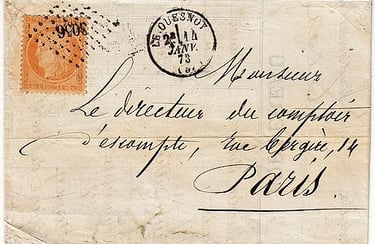 3036
LE QUESNOY
2E 14
JANV.
73
(57)
Monsieur
Le directeur du comptoir
d'escompte, rue Bergère, 14
Paris.